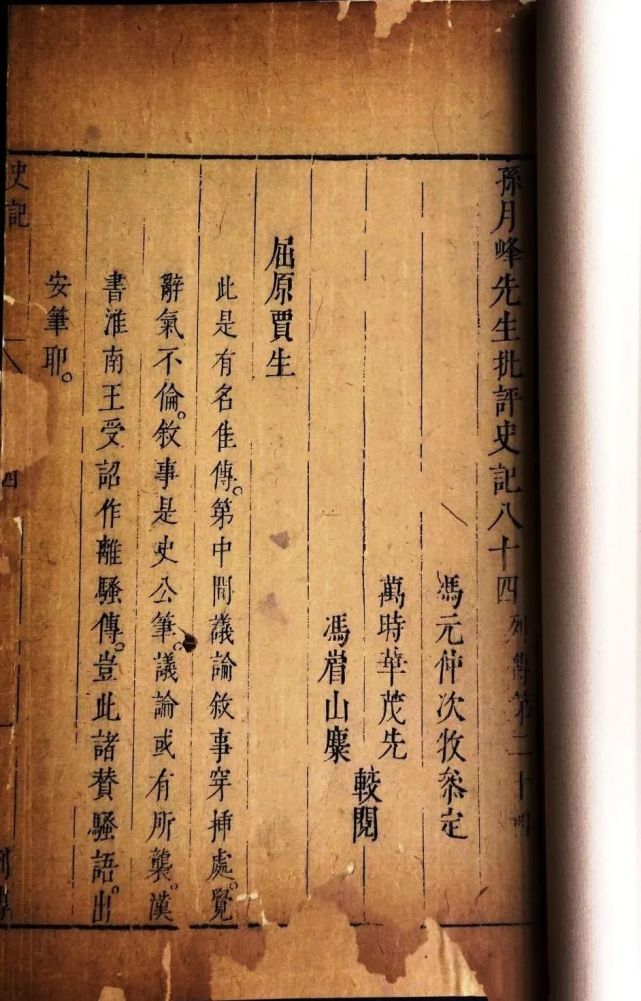 孫月峰先生批評史記八十四 列傳第二十四
馮元仲次牧叅定
萬時華茂先
馮眉山麋
較閱
屈原賈生
此是有名佳傳。第中間議論敘事穿揷處。覺
辭氣不倫。敘事是史公筆。議論或有所襲。漢
書淮南王受詔作離騷傳。豈此諸贊騷語。出
安筆耶。
史記
八
四
列傳